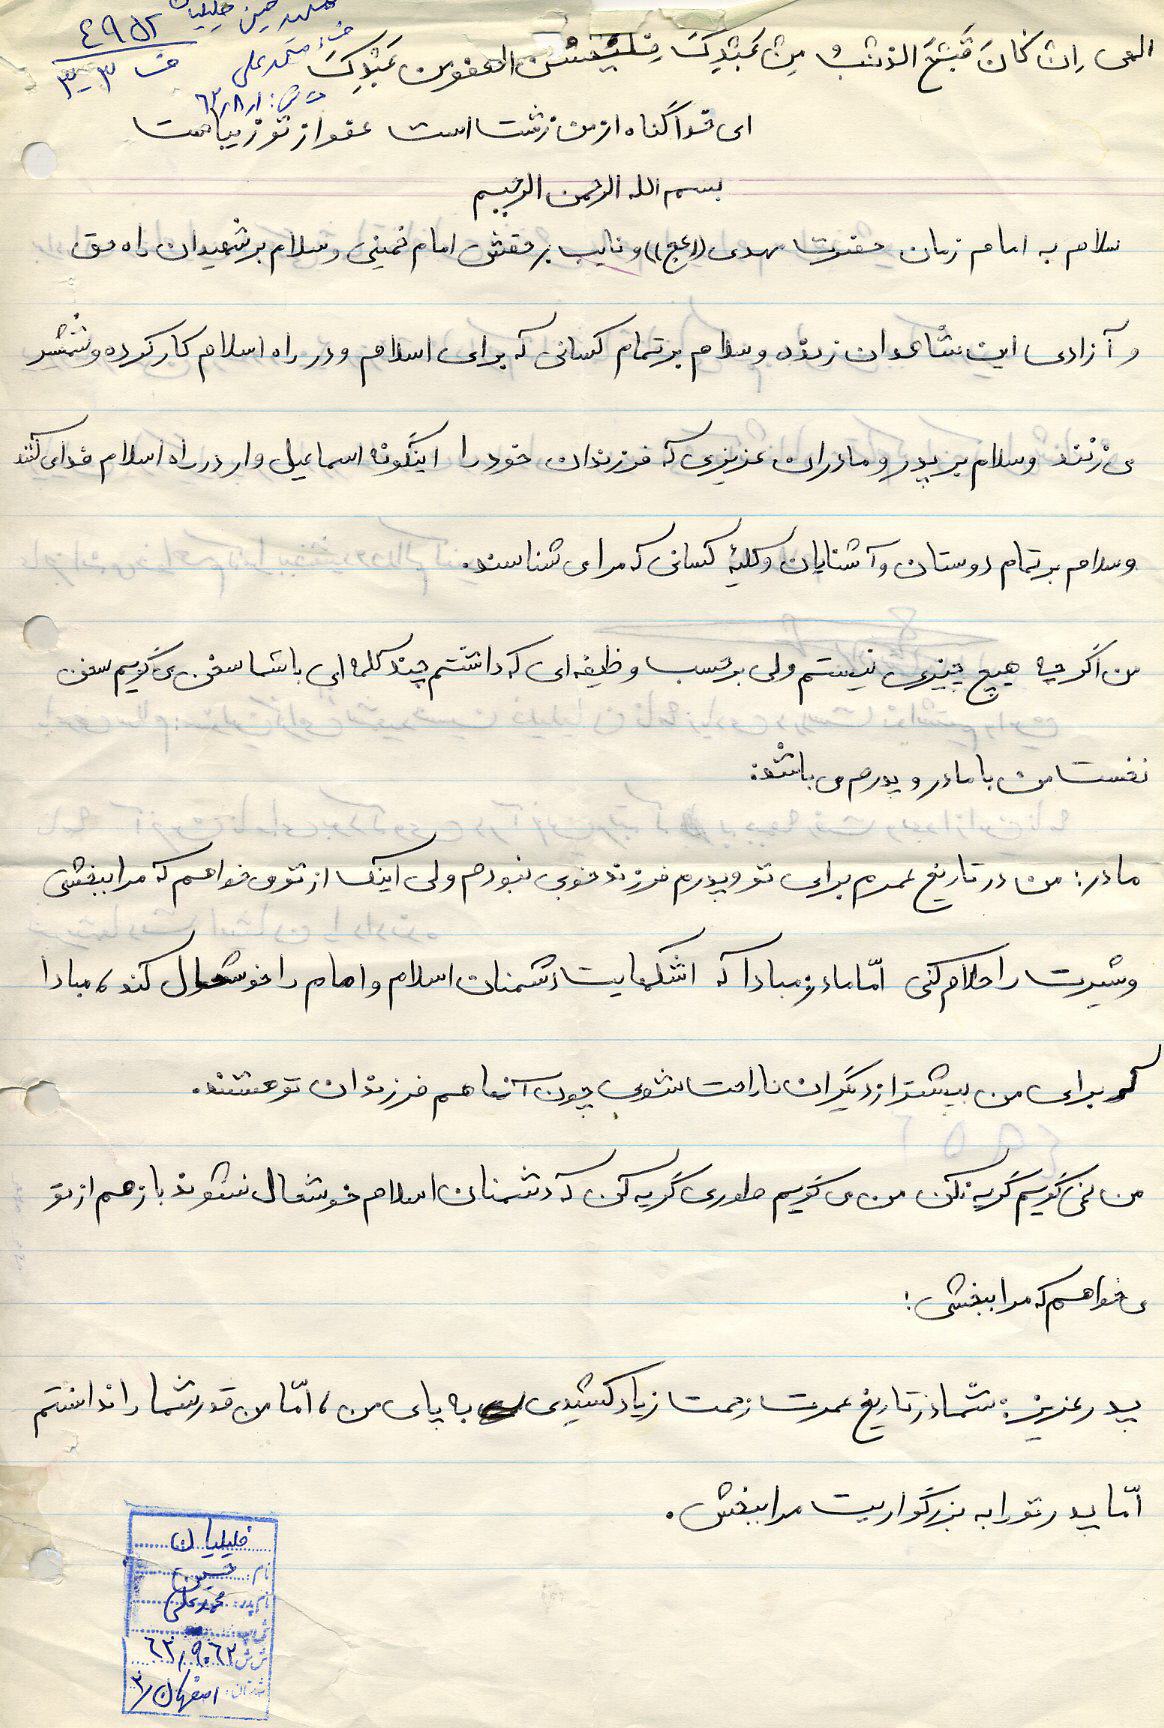 شهید حسین خلیلیان
٤٩٥٢
ف ٣-٣
ف: محمد علی
ت ش: ٦٢٫٨٫١
الهی اِن کانَ قَبُحَ الذنبُ مِن عَبدِکَ فلیحسُن العفو من عَبدِکَ
ای خدا گناه از من زشت است عفو از تو زیباست
بسم الله الرحمن الرحیم
سلام به امام زمان حضرت مهدی ((عج)) و نایب برحقش امام خمینی و سلام بر شهیدان راه حق
و آزادی این شاهدان زنده و سلام بر تمام کسانی که برای اسلام و در راه اسلام کار کرده و شمشیر
می زنند و سلام بر پدر و مادران عزیزی که فرزندان خود را اینگونه اسماعیل وار در راه اسلام فدا می کنند
و سلام بر تمام دوستان و آشنایان و کلیهٔ کسانی که مرا می شناسند.
من اگر چه هیچ چیزی نیستم ولی برحسب وظیفه ای که داشتم چند کلمه ای با شما سخن می گویم سخن
نخست من با مادر و پدرم می باشد:
مادر: من در تاریخ عمرم برای تو و پدرم فرزند خوبی نبودم ولی اینک از تو می خواهم که مرا ببخشی
و شیرت را حلالم کنی امّا مادر: مبادا که اشکهایت دشمنان اسلام و امام را خوشحال کند، مبادا
که برای من بیشتر از دیگران ناراحت شوی چون آنها هم فرزندان تو هستند.
من نمی گویم گریه نکن من می گویم طوری گریه کن که دشمنان اسلام خوشحال نشوند باز هم از تو
می خواهم که مرا ببخشی:
پدر عزیز: شما در تاریخ عمرت زحمت زیاد کشیدی به پای من، امّا من قدر شما را نداشتم
امّا پدر تو را به بزرگواریت مرا ببخش.
خلیلیان
نام: حسین
نام پدر: محمد علی
ش ش ٦٢٫٩٠٦٢
اصفهان ٣